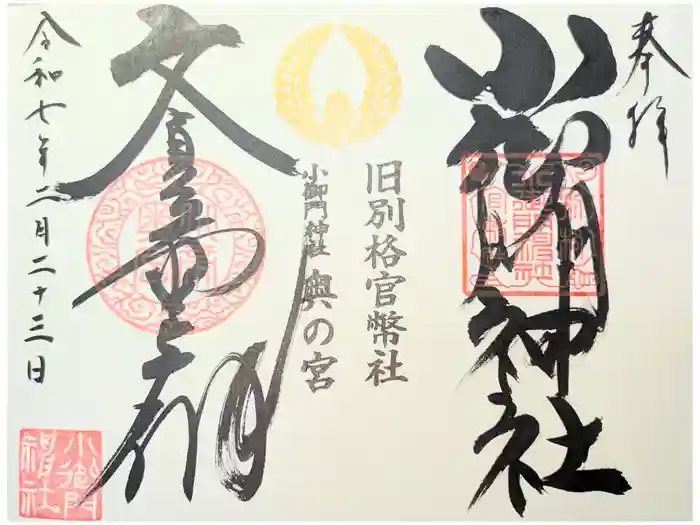 奉拝
小御門神社
旧別格官幣社
小御門神社 奥の宮
文貞公廟
令和七年二月二十三日
小御門
神社